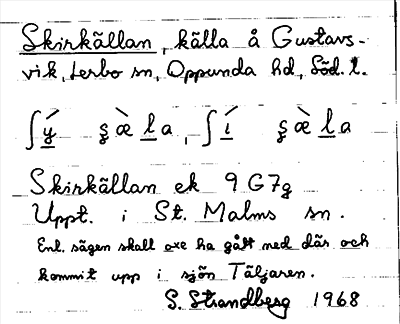 Skirkällan, källa å Gustavs-
vik, Lerbo sn, Oppunda hd, Söd. l.
ʃý ȿæ̀la, ʃí ȿæ̀la
Skirkällan ek 9G7g
Uppt. i St. Malms sn.
Enl. sägen skall oxe ha gått ned där och
kommit upp i sjön Täljaren.
S. Strandberg 1968